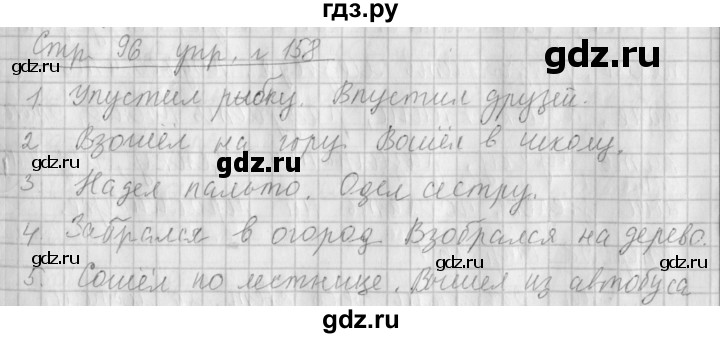 гдз.ру
Стр 96 упр. г 158
gdz.ru
gdz.ru
1. Упустил рыбку. Впустил друзей.
gdz.ru
gdz.ru
2 Взошёл на гору. Вошёл в школу.
gdz.ru
gdz.ru
gdz.ru
3 Надел пальто. Одел сестру.
4. Забрался в огород Взобрался на дерево.
gdz.ru
gdz.ru
gdz.ru
5. Сошёл по лестнице. Вышел из автобуса
gdz.ru